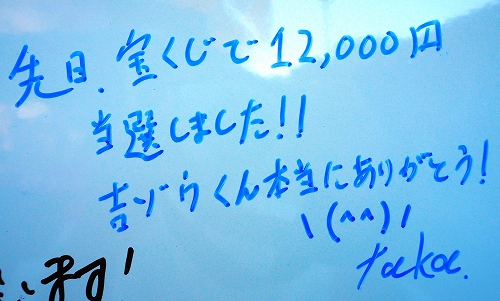 先日、宝くじで12,000円
当選しました!!
吉ゾウくん本当にありがとう!
\(^^)/
taka.